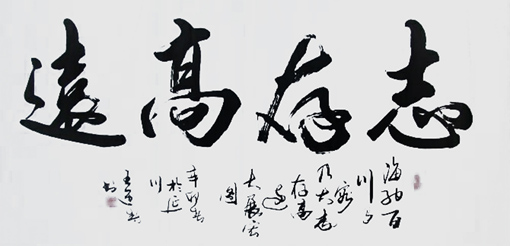 志存高遠
海纳百
川有
容
乃大志
存高
远
大展宏
图
辛卯春
於延
川
书